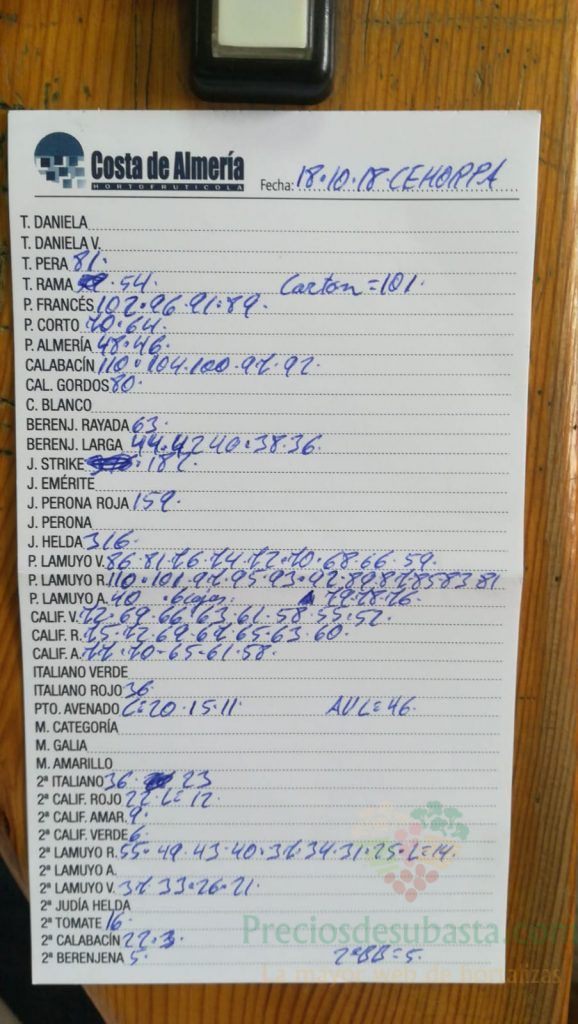 Costa de Almería
HORTOFRUTICOLA
Fecha: 18.10.18 CEHORPA
T. DANIELA
T. DANIELA V.
T. PERA 81.
T. RAMA 54. Carton = 101.
P. FRANCÉS 102.96.91.89.
P. CORTO 70.64.
P. ALMERÍA 48.46.
CALABACÍN 110.104.100.97.92.
CAL. GORDOS 80.
C. BLANCO
BERENJ. RAYADA 63.
BERENJ. LARGA 44.42 40.38.36.
J. STRIKE 182.
J. EMÉRITE
J. PERONA ROJA 159.
J. PERONA
J. HELDA 316.
P. LAMUYO V. 86.81.76.74.72.70.68.66.59.
P. LAMUYO R. 110.101.97.95.93.92.89.87.85.83.81.
P. LAMUYO A. 40 79.78.76.
CALIF. V. 72.69.66.63.61.58.55.52.
CALIF. R. 75.72.69.67.65.63.60.
CALIF. A. 77.70.65.61.58.
ITALIANO VERDE
ITALIANO ROJO 36.
PTO. AVENADO L=20.15.11. AVL=46.
M. CATEGORÍA
M. GALIA
M. AMARILLO
2ª ITALIANO 36. 23
2ª CALIF. ROJO 22.L=12.
2ª CALIF. AMAR. 9.
2ª CALIF. VERDE 6.
2ª LAMUYO R. 55.49.43.40.37.34.31.25.L=14.
2ª LAMUYO A.
2ª LAMUYO V. 37.33.26.21.
2ª JUDÍA HELDA
2ª TOMATE 16.
2ª CALABACÍN 22.3.
2ª BERENJENA 5. 2ªBB=5.
Preciosdesubasta.com
La mayor web de hortalizas